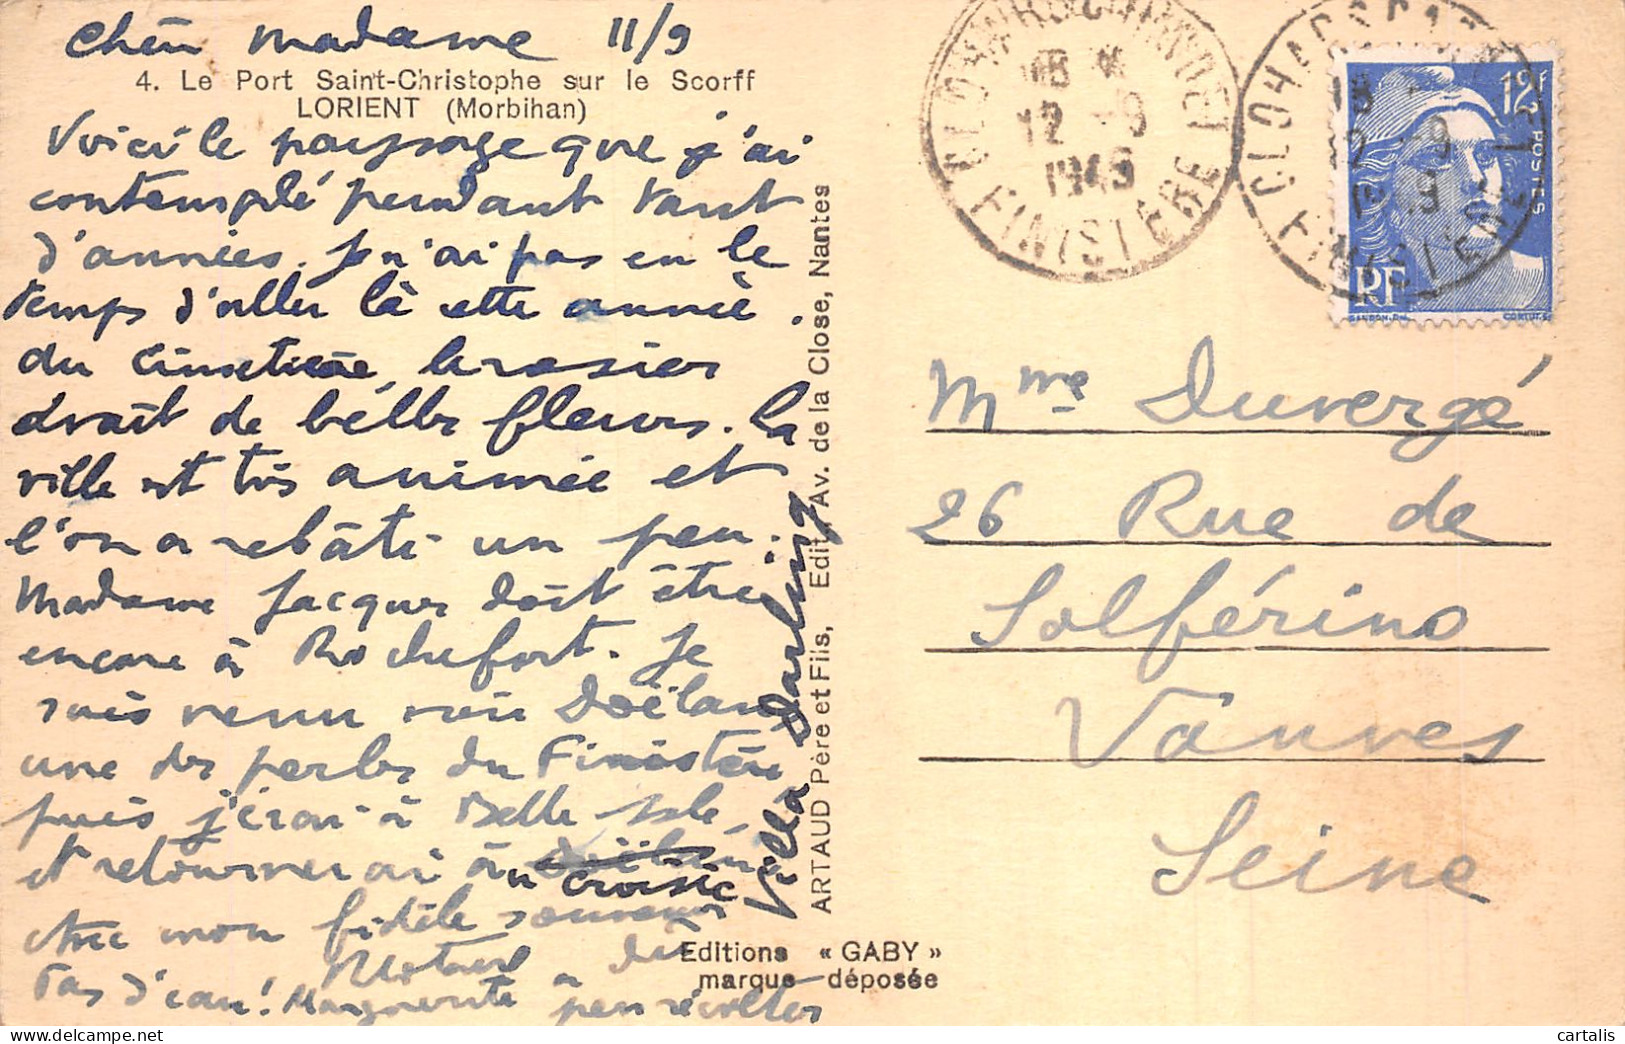 Chère Madame 11/9
4. Le Port Saint-Christophe sur le Scorff
LORIENT (Morbihan)
Voici le paysage que j'ai
contemplé pendant tant
d'années. Je n'ai pas eu le
temps d'aller là cette année.
du cimetière, le rosier
avait de belles fleurs. La
ville est très animée et
l'on a rebâti un peu.
Madame Jacques doit être
encore à Rochefort. Je
suis venu voir Doëlan
une des perles du Finistère
puis j'irai à Belle Isle,
et retournerai à
Croisic
Avec mon fidèle souvenir
Marguerite
pas d'eau! à
peu récoltes
Villa Darling
ARTAUD Père et Fils, Edit., Av. de la Close, Nantes
Editions « GABY »
marque déposée
CLOHARS-CARNOET
18 *
12 -9
1949
FINISTERE
CLOHARS CARNOET
18
12 -9
FINISTERE
12F
POSTES
RF
GANDON. DEL
Mme Duvergé
26 Rue de
Solférino
Vanves
Seine
cartalis